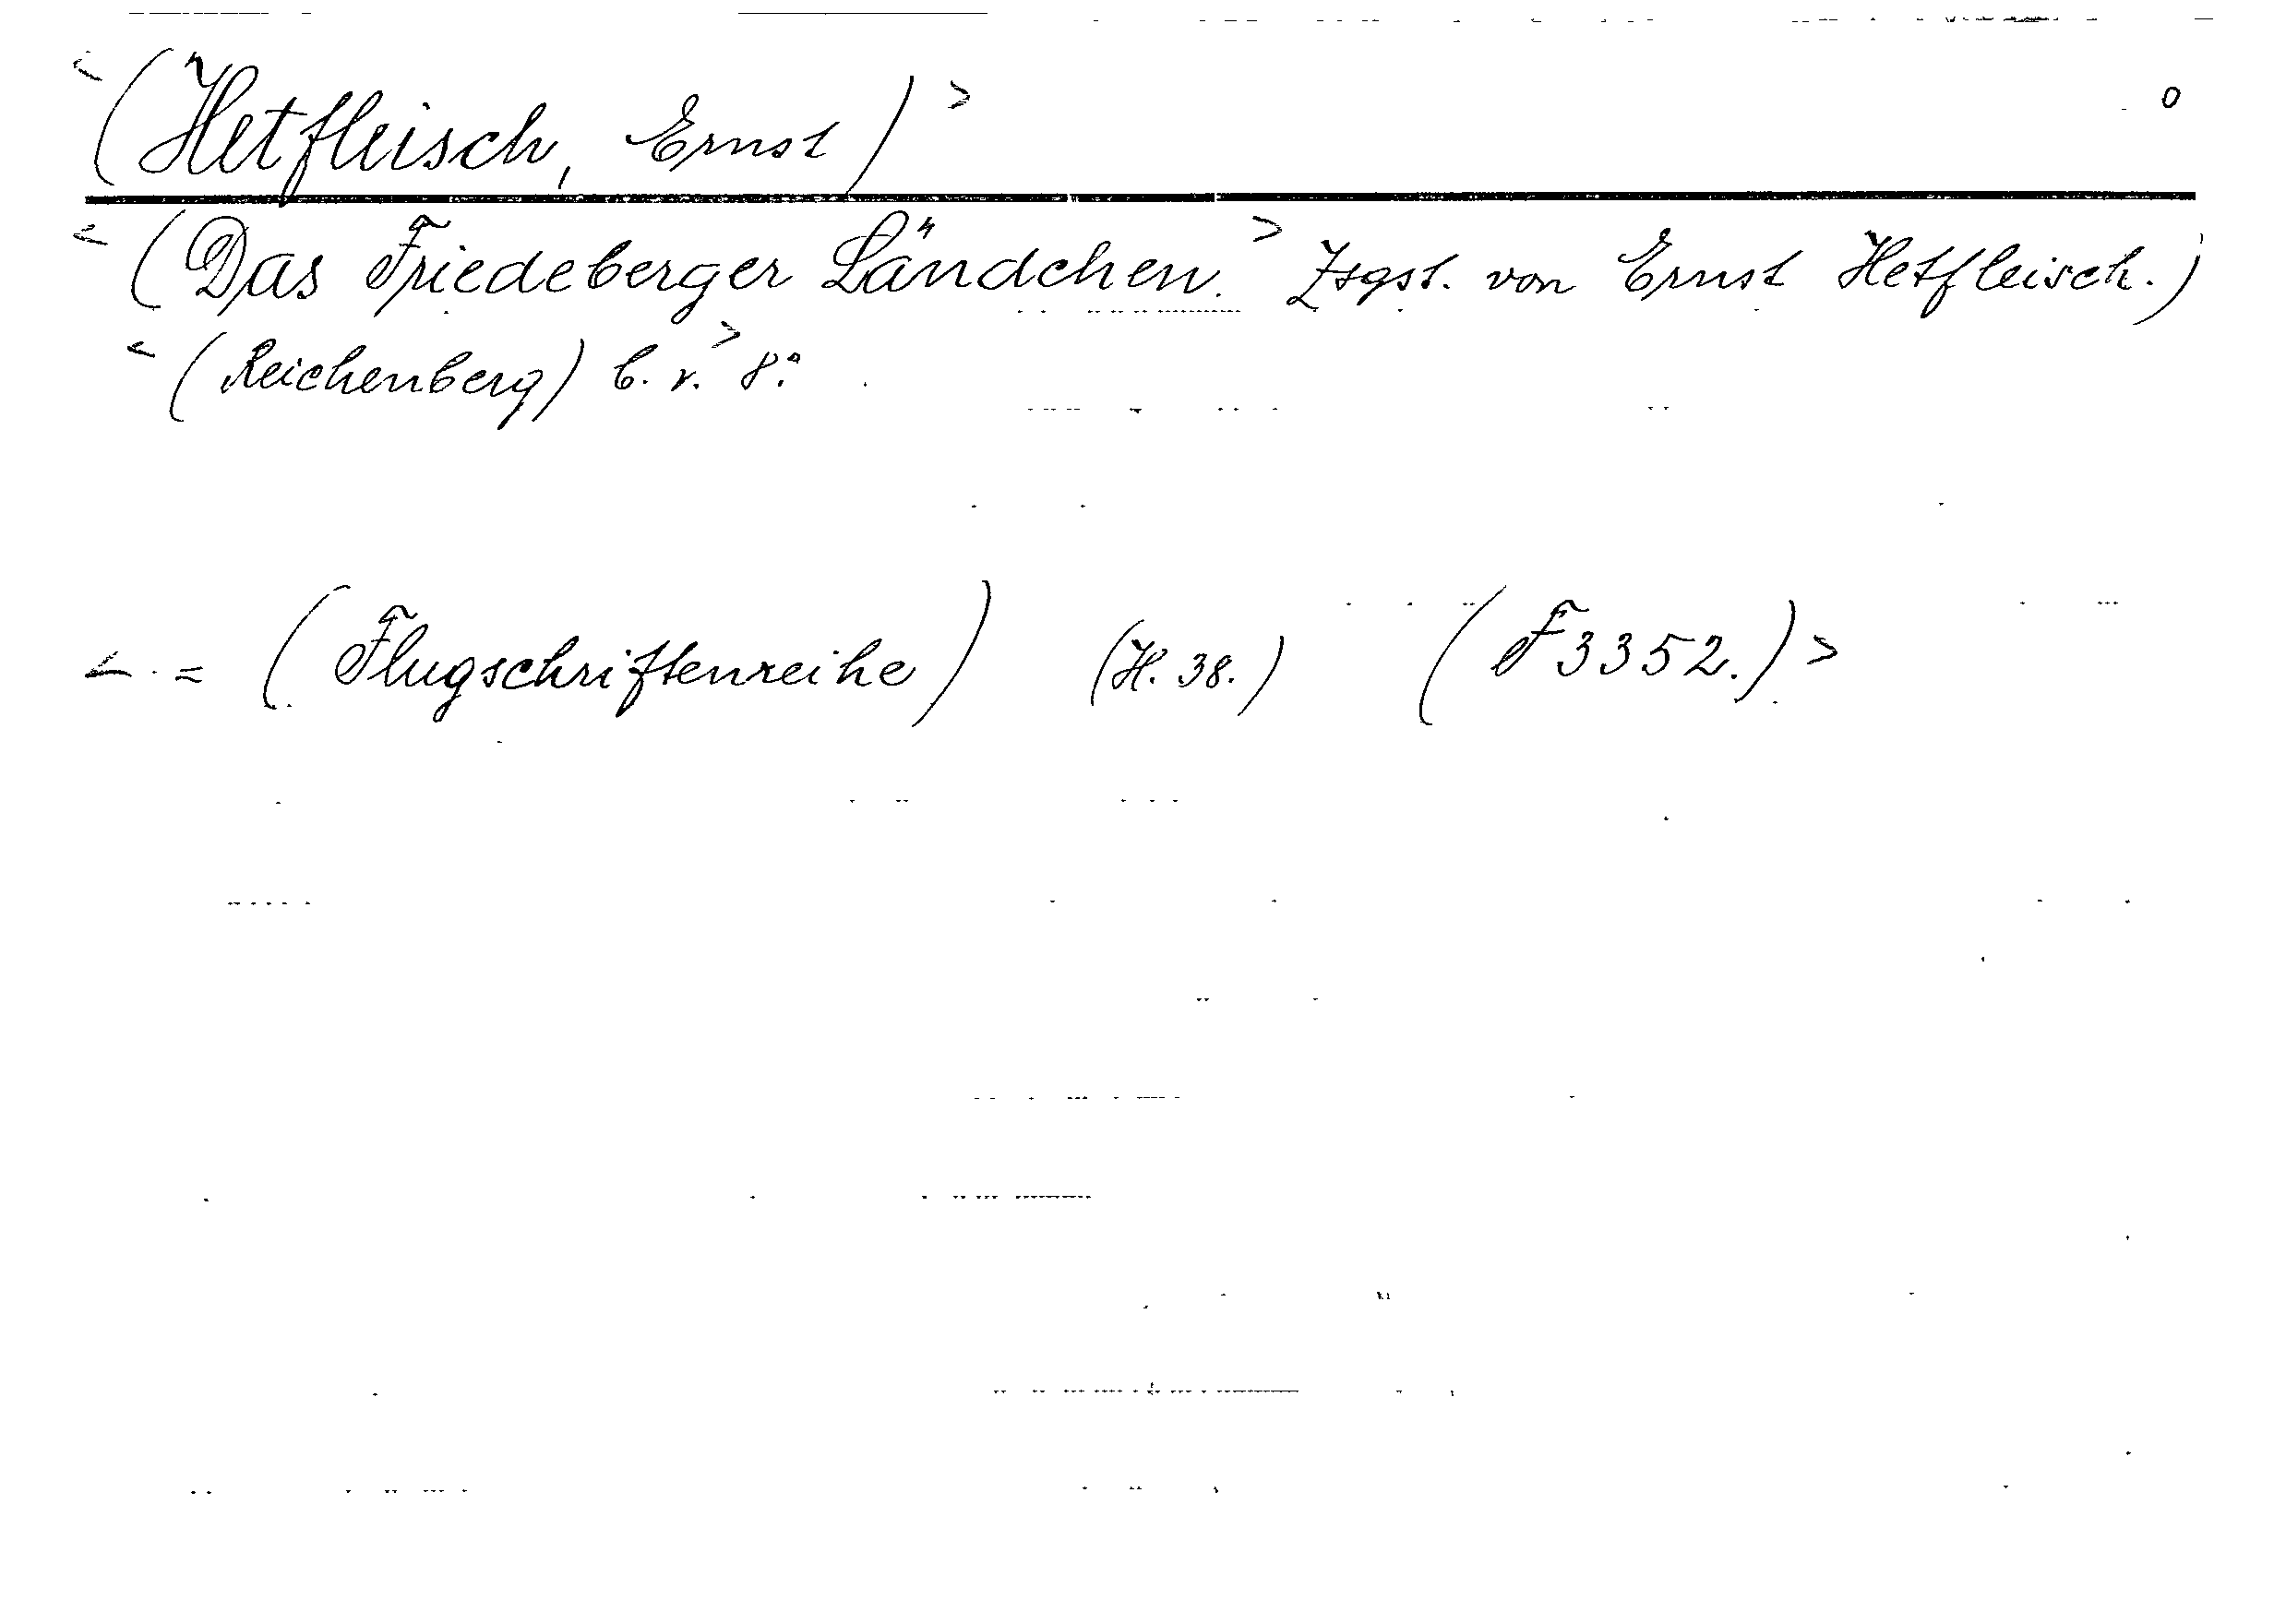 <(Hetfleisch, Ernst)> o
<(Das Friedeberger Ländchen.> Zsgst. von Ernst Hetfleisch.)
<(Reichenberg) b. r.> 8°.
< = (Flugschriftenreihe) (H. 38.) (F 3352.)>